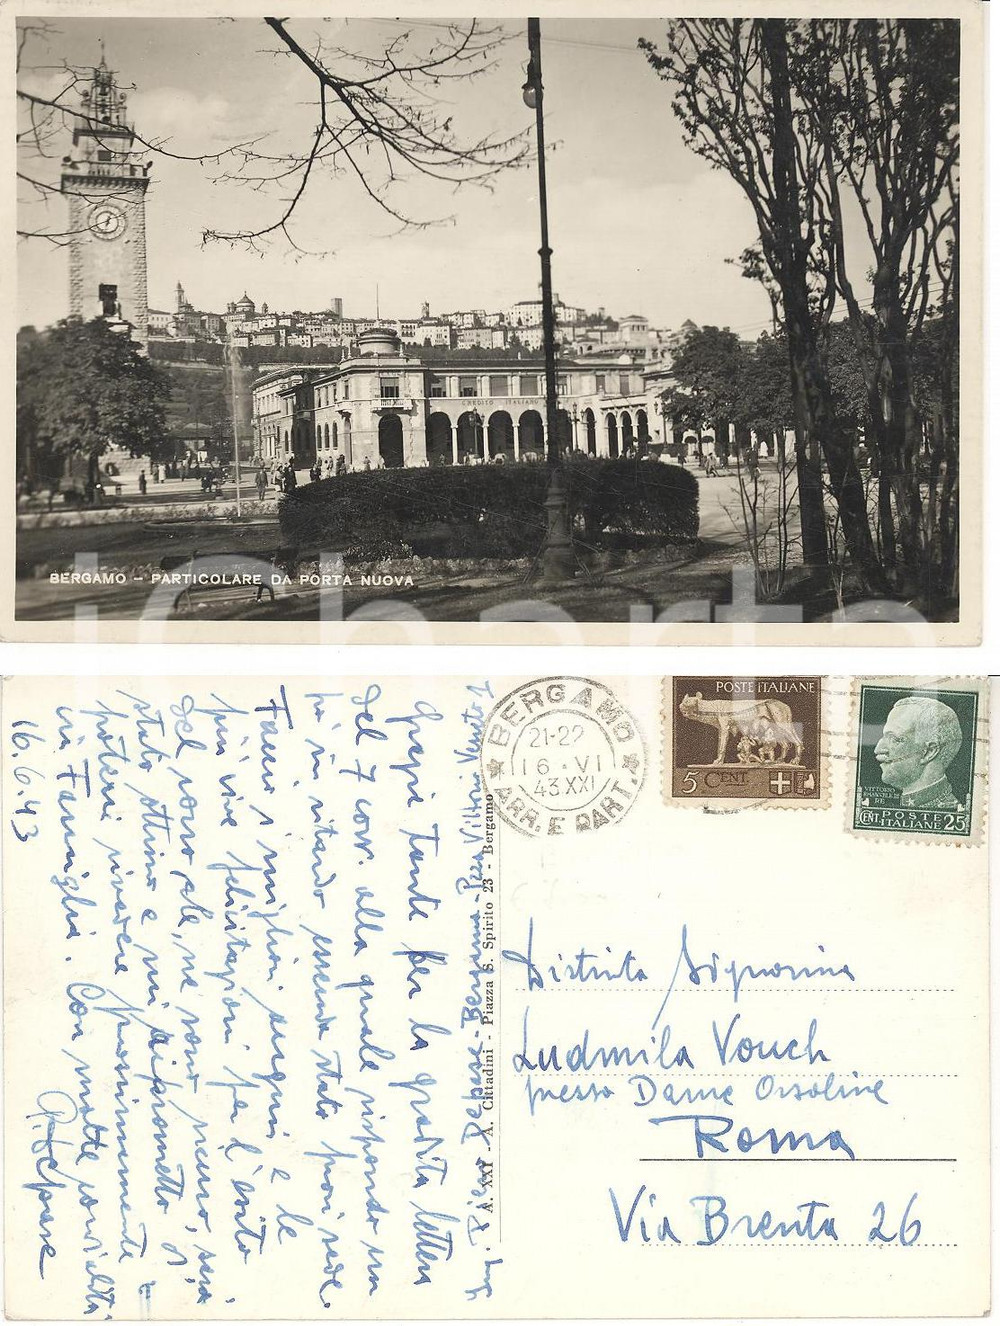 CREDITO ITALIANO
BERGAMO – PARTICOLARE DA PORTA NUOVA
Charta
Ing. Piero Depase - Bergamo - P.zza Vittorio Veneto 1
Grazie tante per la gradita lettera
del 7 corr. alla quale rispondo un
pò in ritardo essendo stato fuori sede.
Faccio i migliori auguri e le
più vive felicitazioni per l'esito
del corso che, ne sono sicuro, sarà
stato ottimo e mi riprometto di
poterLa rivedere prossimamente
in Famiglia. Con molte cordialità
P. Depase
16.6.43
A. XXI - A. Cittadini - Piazza S. Spirito 23 - Bergamo
BERGAMO
21-22
16·VI
43.XXI
ARR. E PART.
POSTE ITALIANE
5 CENT.
VITTORIO
EMANUELE III
RE
POSTE
CENT. ITALIANE 25
Distinta Signorina
Ludmila Vouch
presso Dame Orsoline
Roma
Via Brenta 26